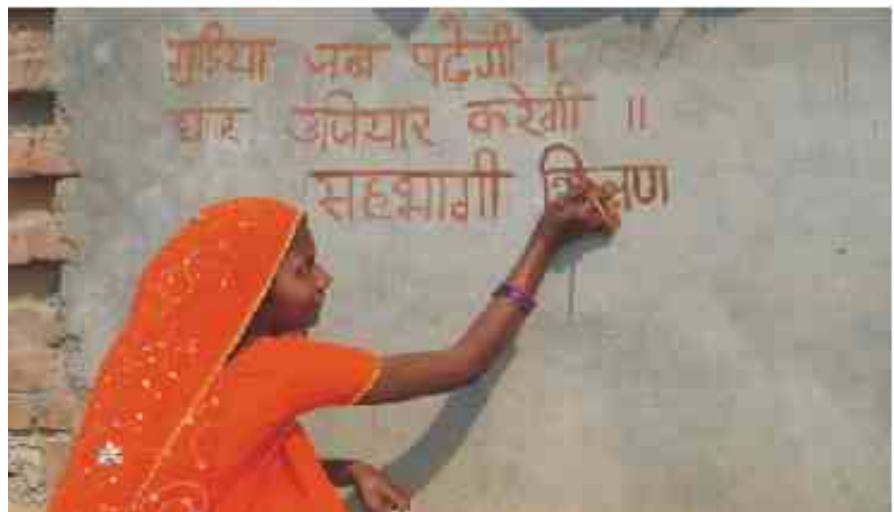 जब पढेगी ।
घर उजियार करेगी ॥
सहभागी शिक्षण